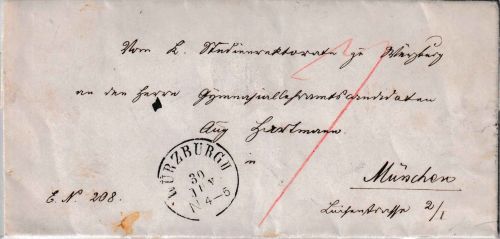 Vom K. Studienrektorate zu Würzburg
an den Herrn Gymnasiallehramtscandidaten
Aug Hartmann
in
München
Luisenstrasse 2/I
E. No. 208.
WÜRZBURG II
30
4-5